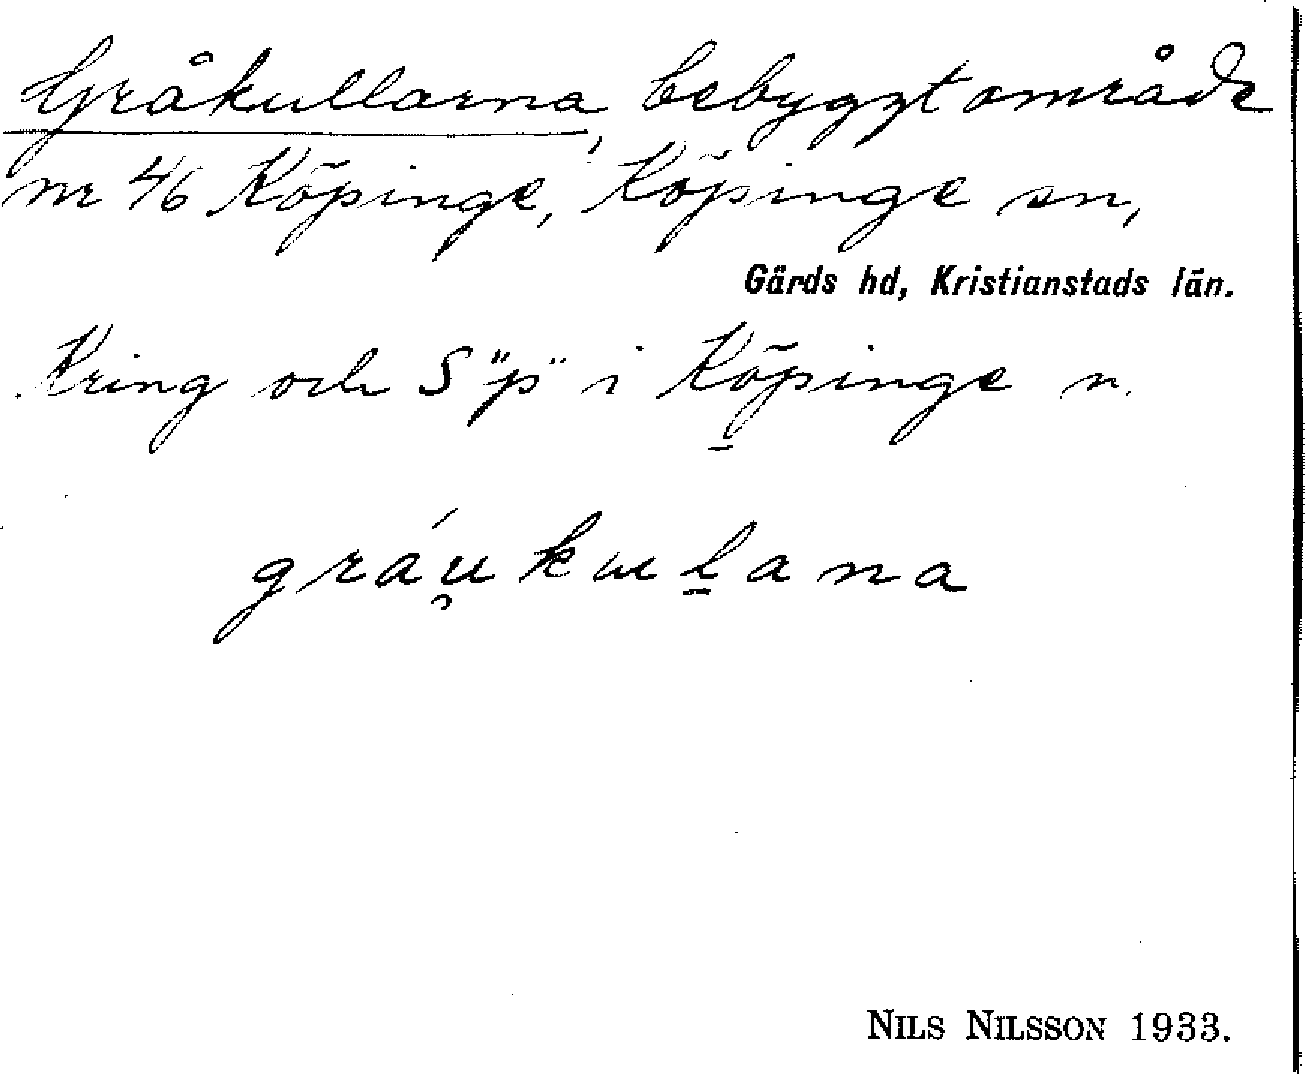 Gråkullarna, bebyggt område
nr 46 Köpinge, Köpinge sn,
Gärds hd, Kristianstads län.
Kring och S "p" i Köpinge n.
gráu̯kuḻana
NILS NILSSON 1933.